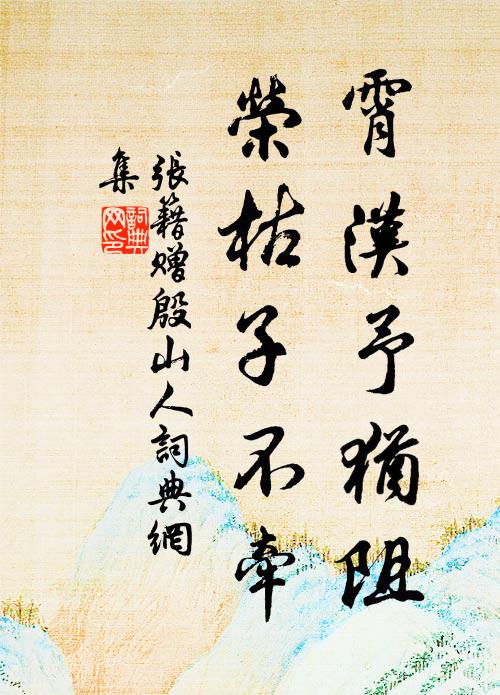 霄漢予猶阻
榮枯子不牽
張籍贈殷山人詞典網
集
詞典
网印